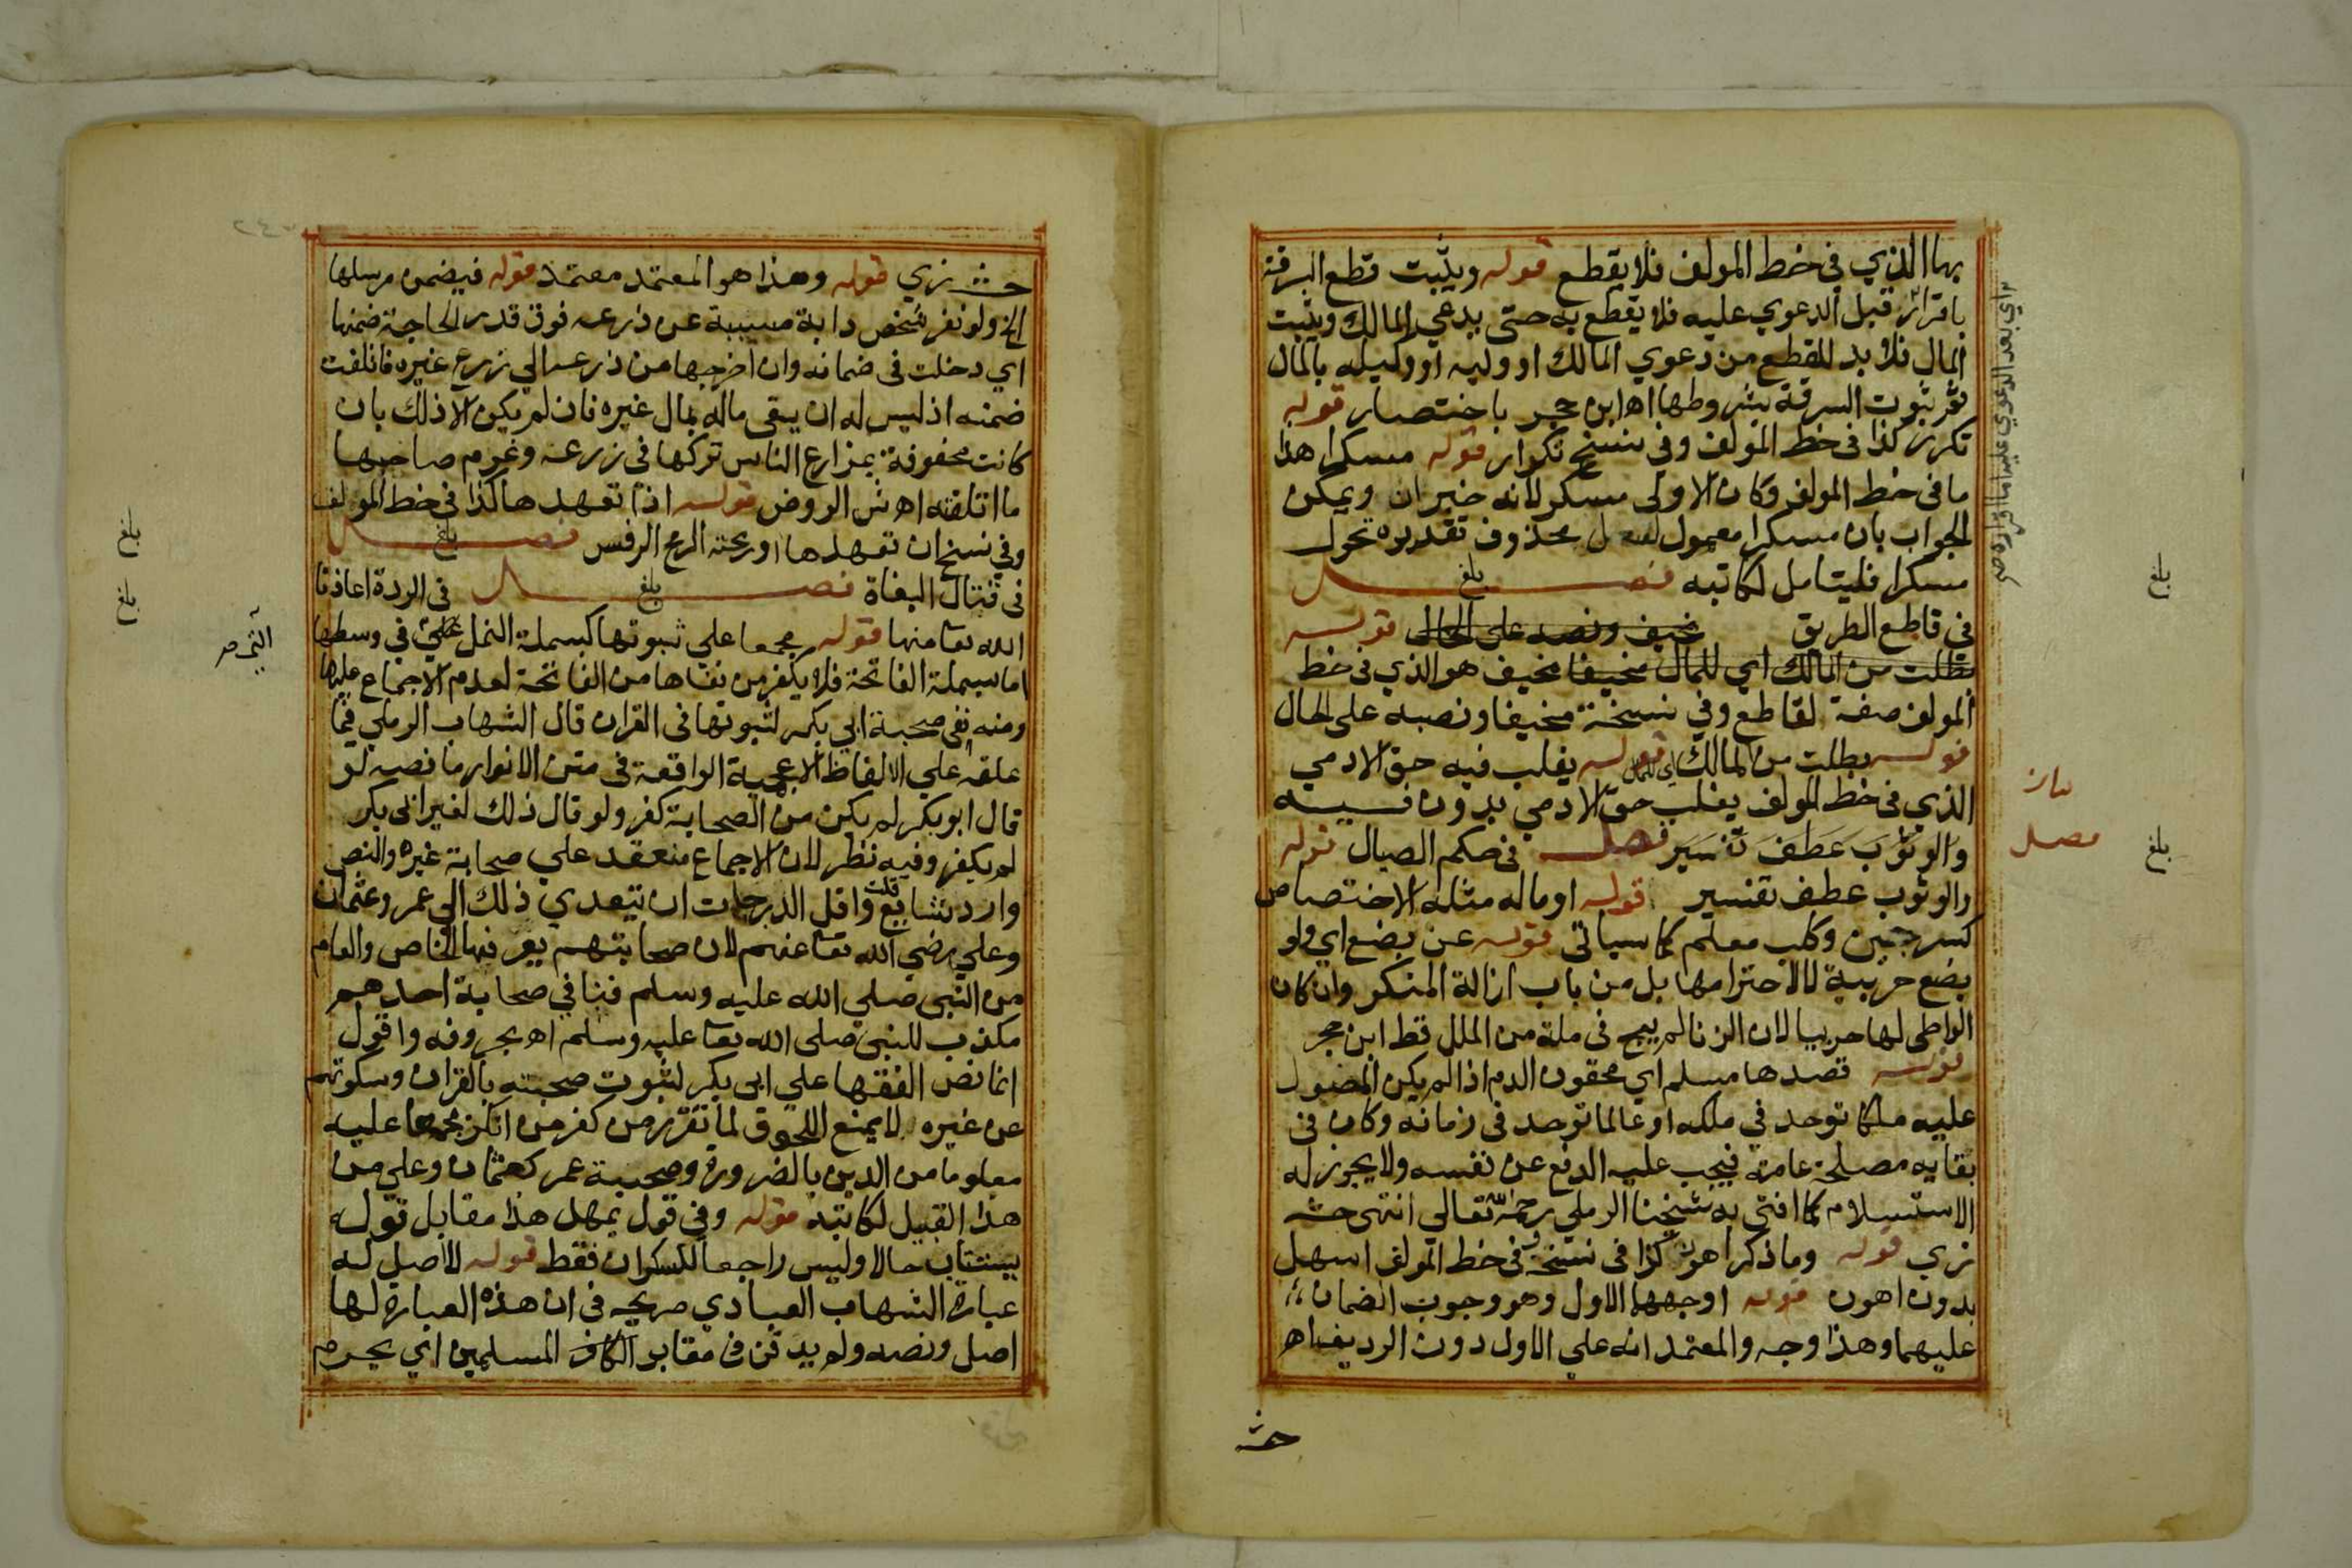 بها الذي في خط المولف فلا يقطع قوله ويثبت قطع السرقة
باقراره قبل الدعوي عليه فلا يقطع به حتي يدعي المالك ويثبت
المال فلا بد للقطع من دعوي المالك او وليه او وكيله بالمال
ثم ثبوت السرقة بشروطها اه ابن حجر باختصار قوله
تكرر كذا في خط المولف وفي نسخ تكرار قوله مسكرا هذا
ما في خط المولف وكان الاولي مسكر لانه خبر ان ويمكن
الجواب بان مسكرا معمول لفعل محذوف تقديره تحول
مسكرا فليتامل لكاتبه فصل
بلغ
في قاطع الطريق مخيف ونصبه علي الحال قوله
بطلت من المالك اي للمال مخيفا مخيف هو الذي في خط
المولف صفة لقاطع وفي نسخة مخيفا ونصبه علي الحال
قوله بطلت من المالك اي للمال قوله يغلب فيه حق الادمي
الذي في خط المولف يغلب حق الادمي بدون فيه
والوثوب عطف تفسير فصل في حكم الصيال قوله
والوثوب عطف تفسير قوله او ماله مثله الاختصاص
كسرجين وكلب معلم كما سياتي قوله عن بضع اي ولو
بضع حربية لا لاحترامها بل من باب ازالة المنكر وان كان
الواطي لها حربيا لان الزنا لم يبح في ملة من الملل قط ابن حجر
قوله قصدها مسلم اي محقون الدم اذا لم يكن المصول
عليه ملكا توحد في ملكه او عالما توحد في زمانه وكان في
بقايه مصلحة عامة فيجب عليه الدفع عن نفسه ولا يجوز له
الاستسلام كما افتي به شيخنا الرملي رحمه الله تعالي انتهي حش
زي قوله وما ذكر اهون كذا في نسخة وفي خط المولف اسهل
بدون اهون قوله اوجهها الاول وهو وجوب الضمان
عليهما وهذا وجه والمعتمد انه علي الاول دون الرديف اه
حش
اي بعد الدعوي عليه اما اقراره صح
بلغ
فصل
بلغ
حش زي قوله وهذا هو المعتمد معتمد قوله فيضمن مرسلها
الخ ولو نفر شخص دابة مسيبة عن زرعه فوق قدر الحاجة ضمنها
اي دخلت في ضمانه وان اخرجها من زرعه الي زرع غيره فاتلفت
ضمنه اذ ليس له ان يقي ماله بمال غيره فان لم يكن الا ذلك بان
كانت محفوفة بمزارع الناس تركها في زرعه وغرم صاحبها
ما اتلفته اه ش الروض قوله اذا تعهدها كذا في خط المولف
وفي نسخ ان تعهدها اورمحته الرمح الرفس فصل
بلغ
في قتال البغاة فصل في الردة اعاذنا
بلغ
الله تعا منها قوله مجمعا علي ثبوتها كبسملة النمل التي في وسطها
اما بسملة الفاتحة فلا يكفر من نفاها من الفاتحة لعدم الاجماع عليها
ومنه نفي صحبة ابي بكر لثبوتها في القران قال الشهاب الرملي فيما
علقه علي الالفاظ الاعجمية الواقعة في متن الانوار ما نصه لو
قال ابو بكر لم يكن من الصحابة كفر ولو قال ذلك لغير ابي بكر
لم يكفر وفيه نظر لان الاجماع منعقد علي صحابة غيره والنص
وارد شايع قلت واقل الدرجات ان يتعدي ذلك الي عمر وعثمان
وعلي رضي الله تعا عنهم لان صحابتهم يعرفها الخاص والعام
من النبي صلي الله عليه وسلم فنافي صحابة احدهم
مكذب للنبي صلي الله تعا عليه وسلم اه بحروفه واقول
انما نص الفقها علي ابي بكر لثبوت صحبته بالقران وسكوتهم
عن غيره لا يمنع اللحوق لما تقرر من كفر من انكر مجمعا عليه
معلوما من الدين بالضرورة وصحبة عمر كعثمان وعلي من
هذا القبيل لكاتبه قوله وفي قول يمهل هذا مقابل قوله
يستتاب حالا وليس راجعا للسكران فقط قوله لا اصل له
عبارة الشهاب العبادي صريحه في ان هذه العبارة لها
اصل ونصه ولم يدفن في مقابر الكافر المسلمين اي يحرم
بلغ
بلغ
التي صح